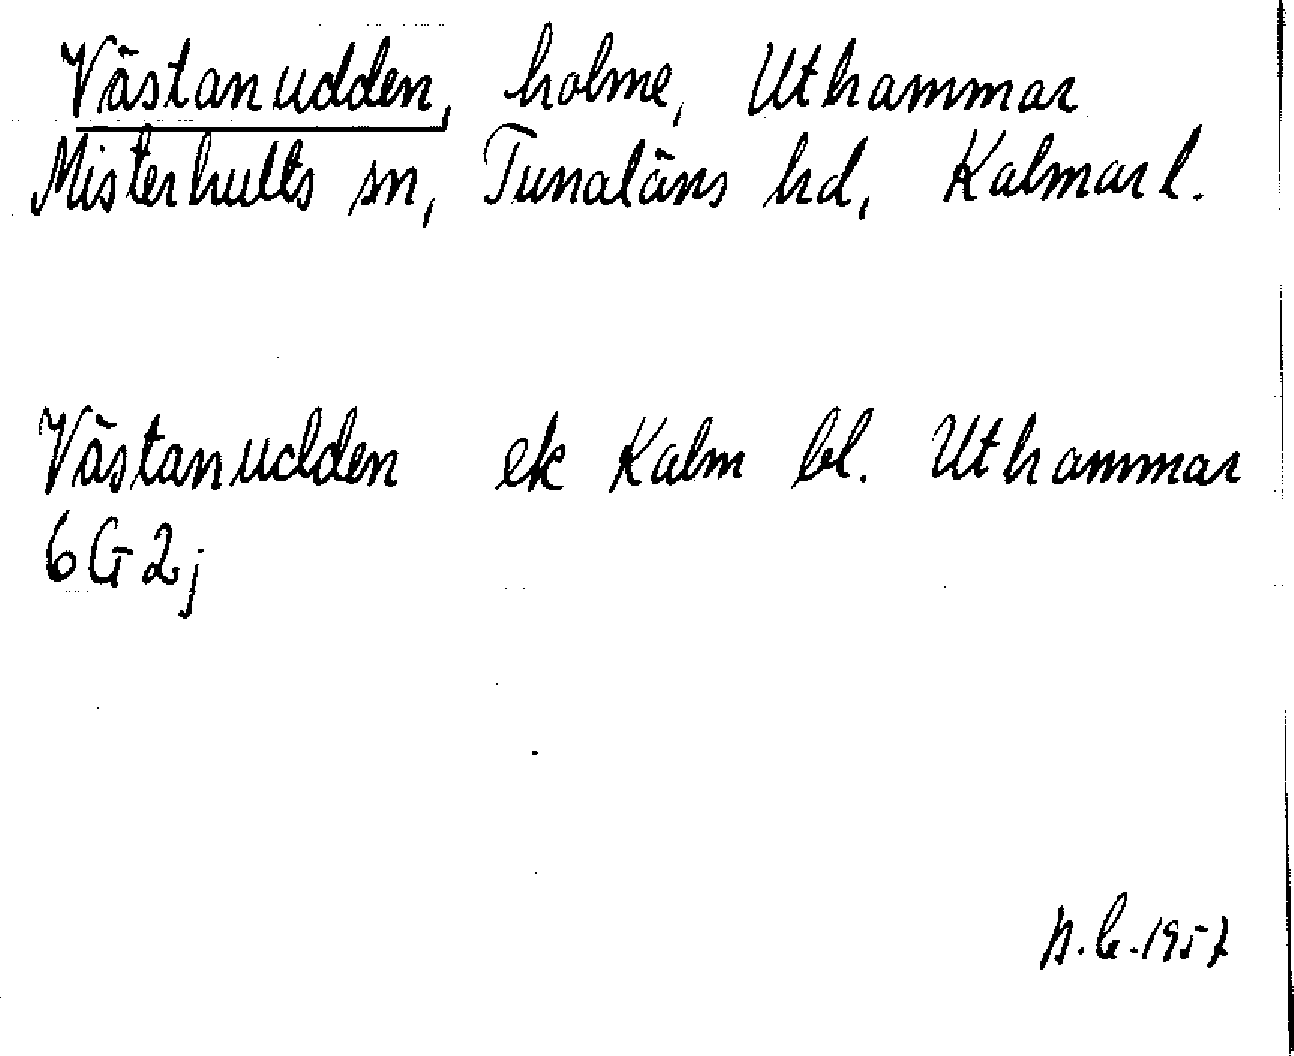 Västanudden, holme, Uthammar
Misterhults sn, Tunaläns hd, Kalmar l.
Västanudden ek Kalm bl. Uthammar
6 G 2j
1957